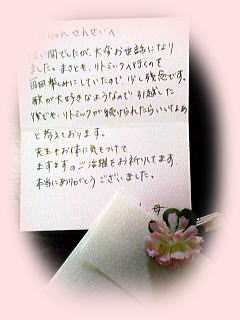 ちゃん せんせいへ
い間でしたが、大変お世話になり
ました。まさとも、リトミックへ行くのを
毎回楽しみにしていたので、少し残念です。
歌が大好きなようなので、引越した
後でも、リトミックが続けられたらいいなぁ
と考えております。
先生もお体に気をつけて
ますますのご活躍をお祈りしてます。
本当にありがとうございました。
母